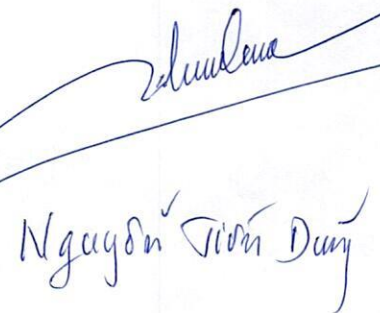 Nguyễn Tiến Dũng